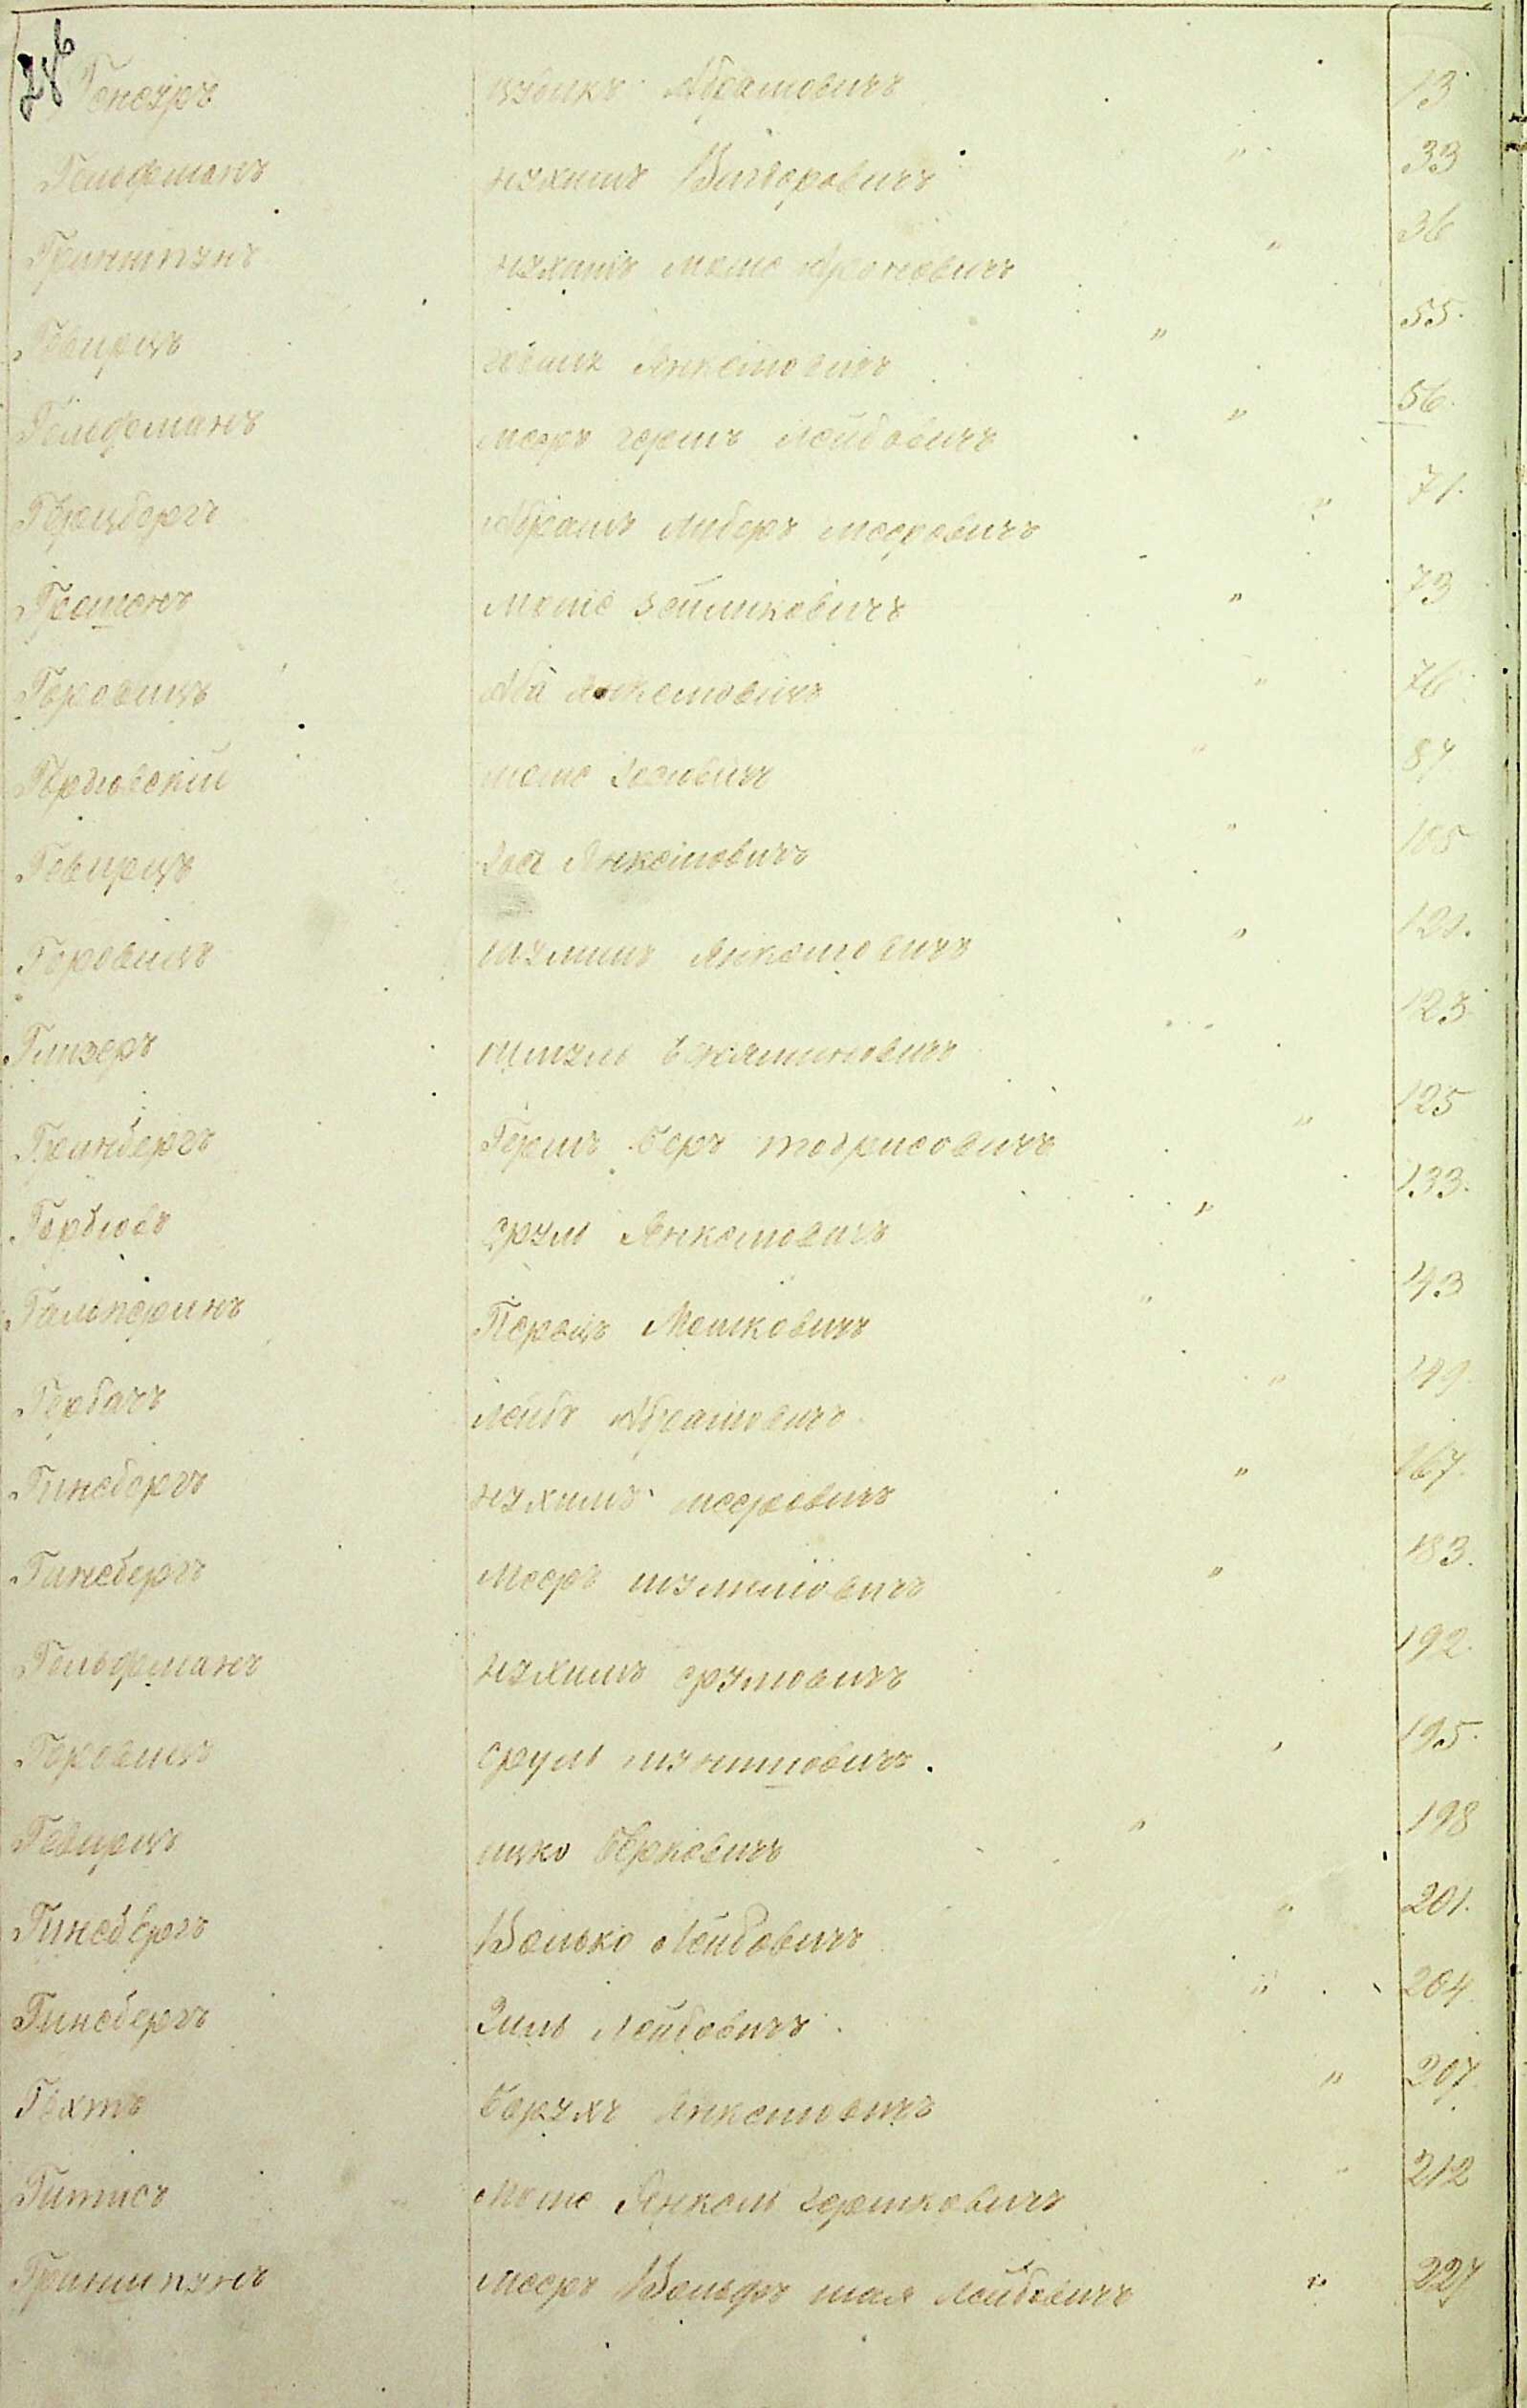 Генсеръ Абрамовичъ 13
Гельфманъ Нухимъ Вигдоровичъ " 33
Гринштпунъ Нухимъ Моше Ароновичъ " 36
Гевирцъ Янкелювичъ " 55.
Гельфманъ Мееръ Гершъ Лейбовичъ " 56.
Герцбергъ Абрамъ Либеръ Мееровичъ " 71.
Гросманъ Мошe Зейликовичъ " 73
Горовицъ Аба Янкелювичъ " 76
Гордовский Моше Иосювичъ " 87
Гевирцъ Іосъ Янкелювичъ " 105
Горовицъ Шулимъ Янкелювичъ " 121.
Глизеръ Шмуль Беняминовичъ 123
Гринбергъ Гершъ Беръ " 125
Горбловъ Сруль Янкелювичъ " 133.
Гальперинъ Перецъ Мошковичъ " 143
Гербачъ Лейбъ Абрамовичъ " 149.
Гинсбергъ Нухимъ Мееровичъ " 167.
Гинсбергъ Мееръ Шулимовичъ " 183.
Гельфманъ Нухимъ Срулювичъ 192.
Горовицъ Сруль . " 195.
Гевирцъ Ицко Берковичъ " 198
Гинсбергъ Волько Лейбовичъ " 201.
Гинсбергъ Зиль Лейбовичъ " 204
Гехтъ Борухъ Янкелювичъ " 207.
Гитисъ Моше Янкель Гершковичъ " 212
Гриншпунъ Мееръ Вольфъ Шая Лейбовичъ " 227